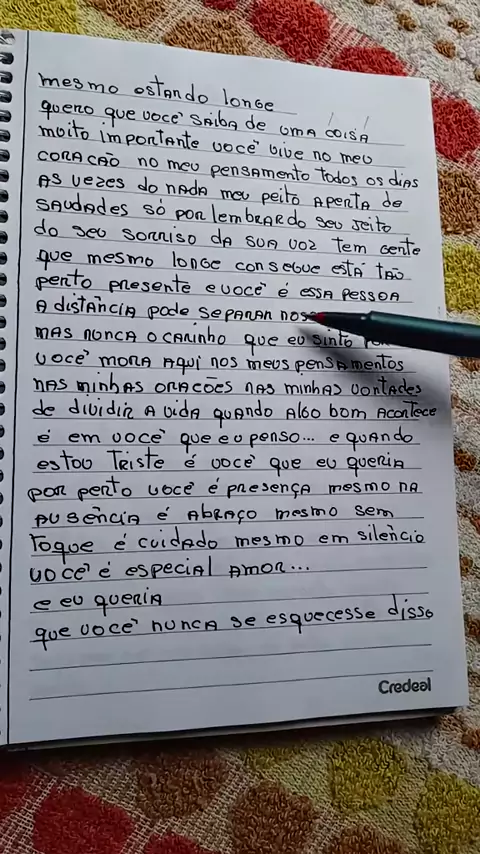 mesmo estando longe
quero que você saiba de uma coisa
muito importante você vive no meu
coração no meu pensamento todos os dias
as vezes do nada meu peito aperta de
saudades só por lembrar do seu jeito
do seu sorriso da sua voz tem gente
que mesmo longe consegue está tão
perto presente e você é essa pessoa
a distância pode separar
mas nunca o carinho que eu sinto
você mora aqui nos meus pensamentos
nas minhas orações nas minhas vontades
de dividir a vida quando algo bom acontece
é em você que eu penso... e quando
estou triste é você que eu queria
por perto você é presença mesmo na
ausência é abraço mesmo sem
toque é cuidado mesmo em silêncio
você é especial amor...
e eu queria
que você nunca se esquecesse disso
Credeal